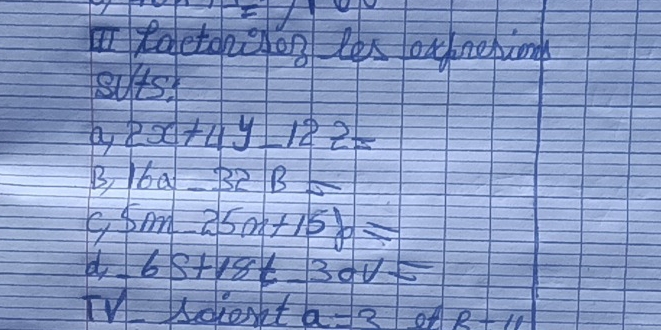 III Factorisez les expressions
svts:
a, 2x+4y_12z=
B, 16a_32B=
c, 5m_25n+15p=
d, _6s+18t_30v=
IV_ soient a=3 et B=4